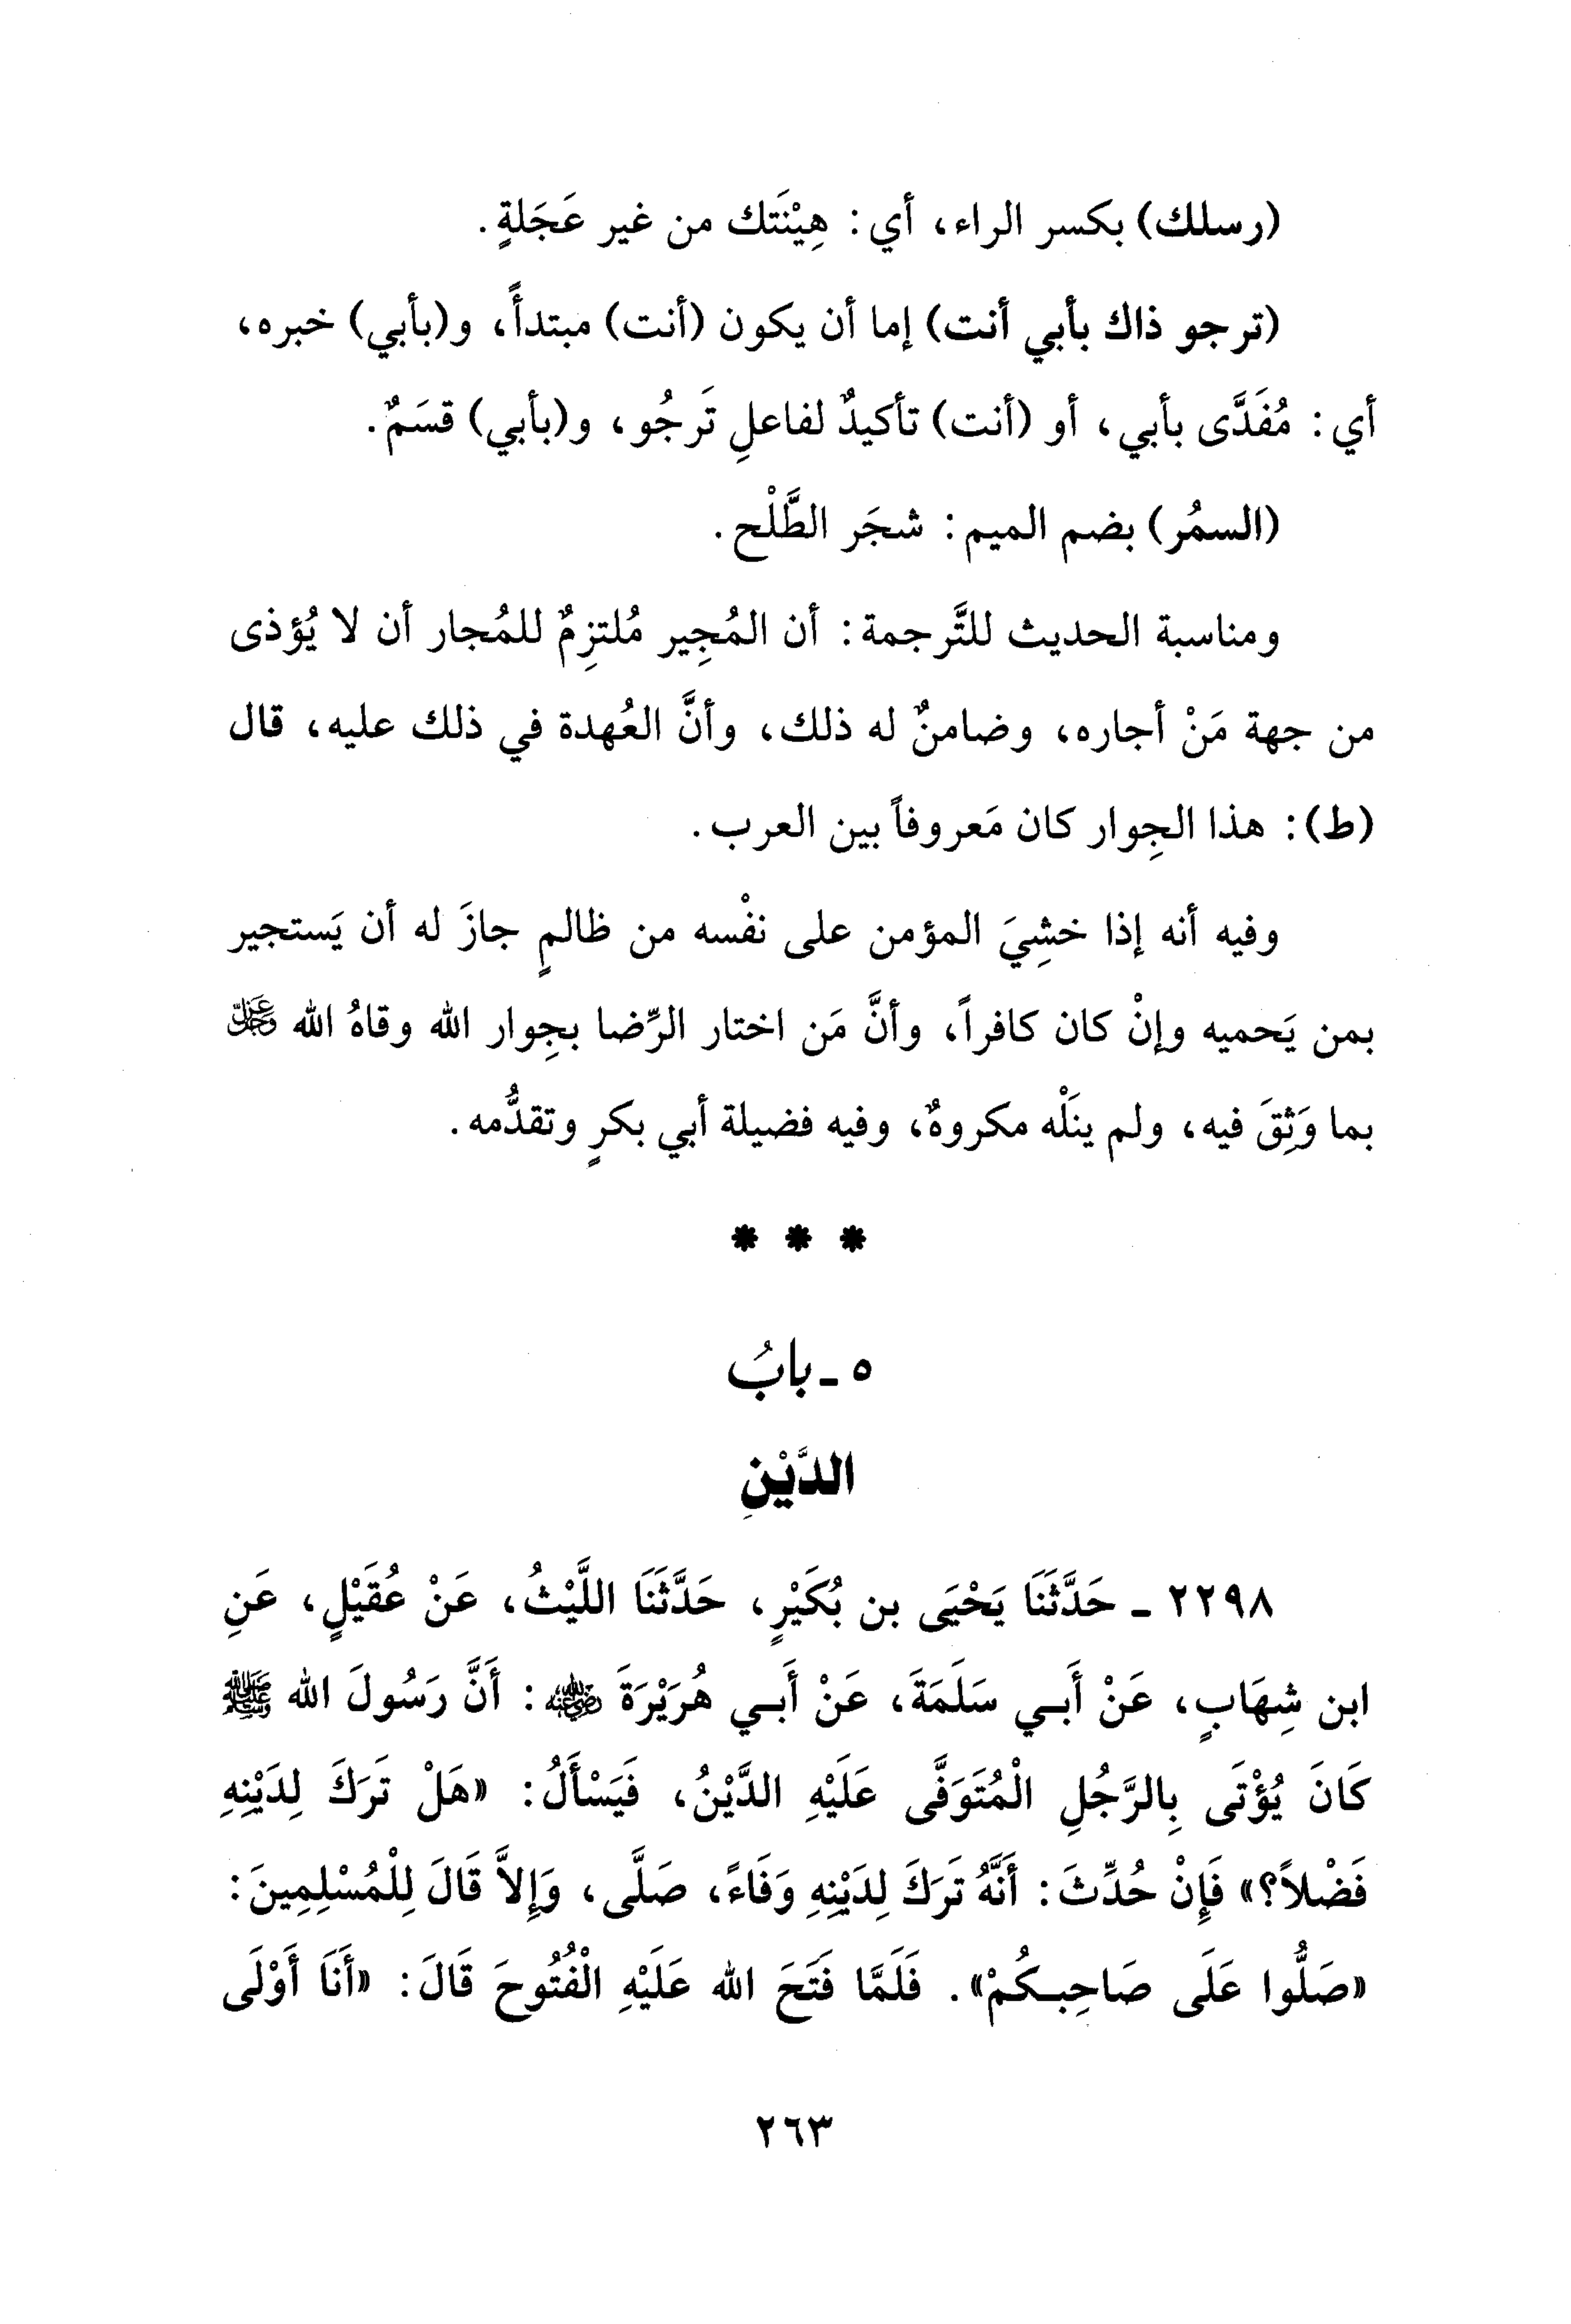 (رسلك) بكسر الراء، أي: هِيْنَتك من غير عَجَلةٍ.
(ترجو ذاك بأبي أنت) إما أن يكون (أنت) مبتدأً، و(بأبي) خبره،
أي: مُفَدَّى بأبي، أو (أنت) تأكيدٌ لفاعلِ تَرجُو، و(بأبي) قسَمٌ.
(السمُر) بضم الميم: شجَر الطَّلْح.
ومناسبة الحديث للتَّرجمة: أن المُجِير مُلتزِمٌ للمُجار أن لا يُؤذى
من جهة مَنْ أجاره، وضامنٌ له ذلك، وأنَّ العُهدة في ذلك عليه، قال
(ط): هذا الجِوار كان مَعروفاً بين العرب.
وفيه أنه إذا خشِيَ المؤمن على نفْسه من ظالمٍ جازَ له أن يَستجير
بمن يَحميه وإنْ كان كافراً، وأنَّ مَن اختار الرِّضا بجِوار الله وقاهُ الله عَزَّ وَجَلَّ
بما وَثِقَ فيه، ولم ينَلْه مكروهٌ، وفيه فضيلة أبي بكرٍ وتقدُّمه.
* * *
٥ - بابُ
الدَّيْنِ
٢٢٩٨ - حَدَّثَنَا يَحْيَى بن بُكَيْرٍ، حَدَّثَنَا اللَّيْثُ، عَنْ عُقَيْلٍ، عَنِ
ابن شِهَابٍ، عَنْ أَبِي سَلَمَةَ، عَنْ أَبِي هُرَيْرَةَ رضي الله عنه: أَنَّ رَسُولَ الله ﷺ
كَانَ يُؤْتَى بِالرَّجُلِ الْمُتَوَفَّى عَلَيْهِ الدَّيْنُ، فَيَسْأَلُ: «هَلْ تَرَكَ لِدَيْنِهِ
فَضْلاً؟» فَإِنْ حُدِّثَ: أَنَّهُ تَرَكَ لِدَيْنِهِ وَفَاءً، صَلَّى، وَإِلاَّ قَالَ لِلْمُسْلِمِينَ:
«صَلُّوا عَلَى صَاحِبِكُمْ». فَلَمَّا فَتَحَ الله عَلَيْهِ الْفُتُوحَ قَالَ: «أَنَا أَوْلَى
٢٦٣